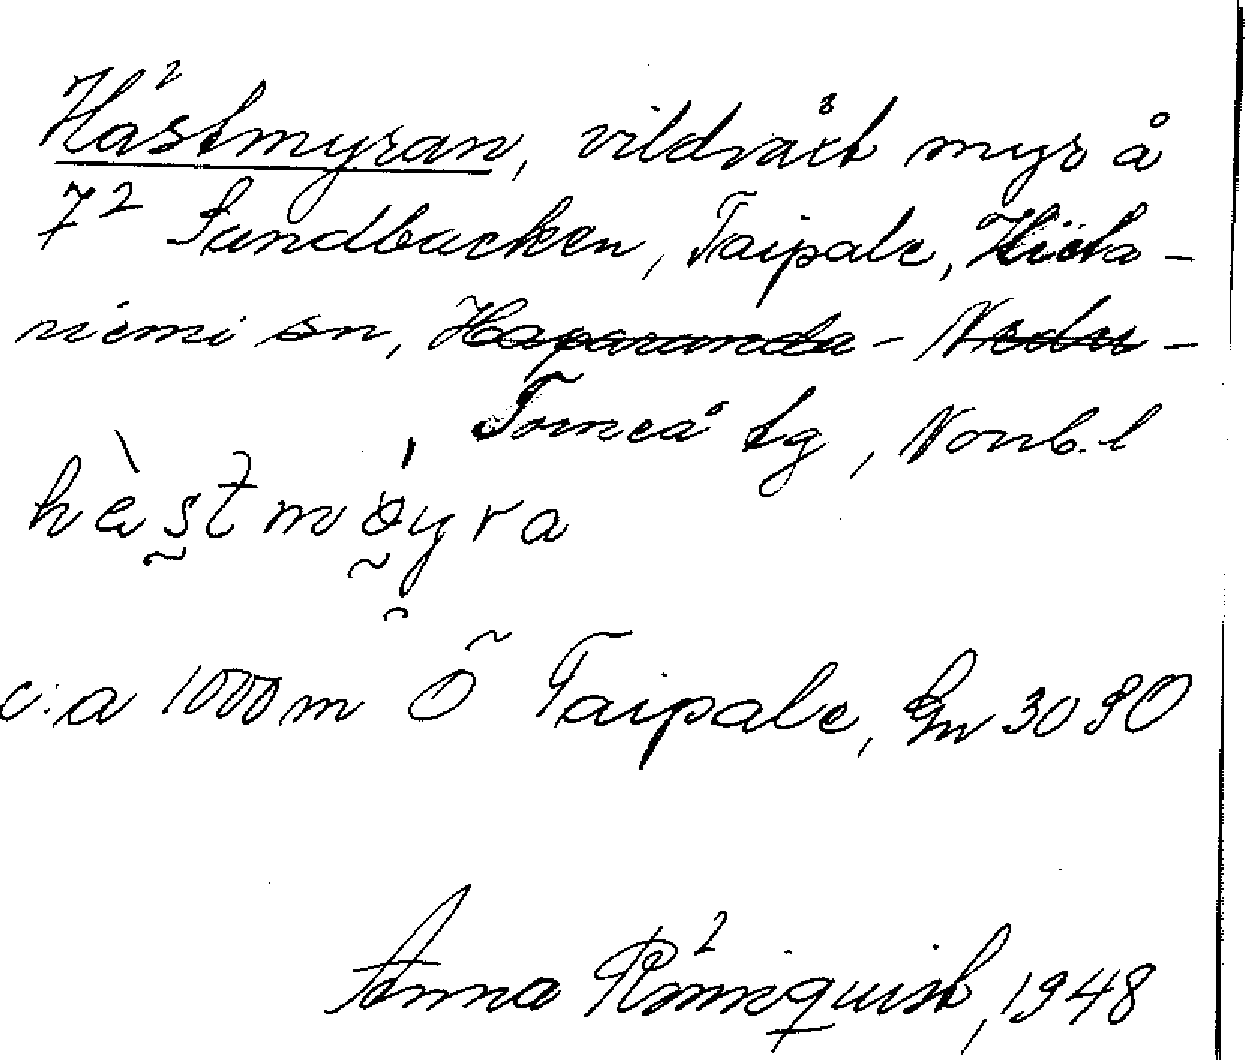 Hästmyran, vildvåt myr å
7² Sandbacken, Taipale, Hieta-
niemi sn, Haparanda - Nedre-
Torneå tg, Norrb. l
hästmöyra
c:a 1000 m Ö Taipale, Gn 3090
Anna Rönnquist, 1948